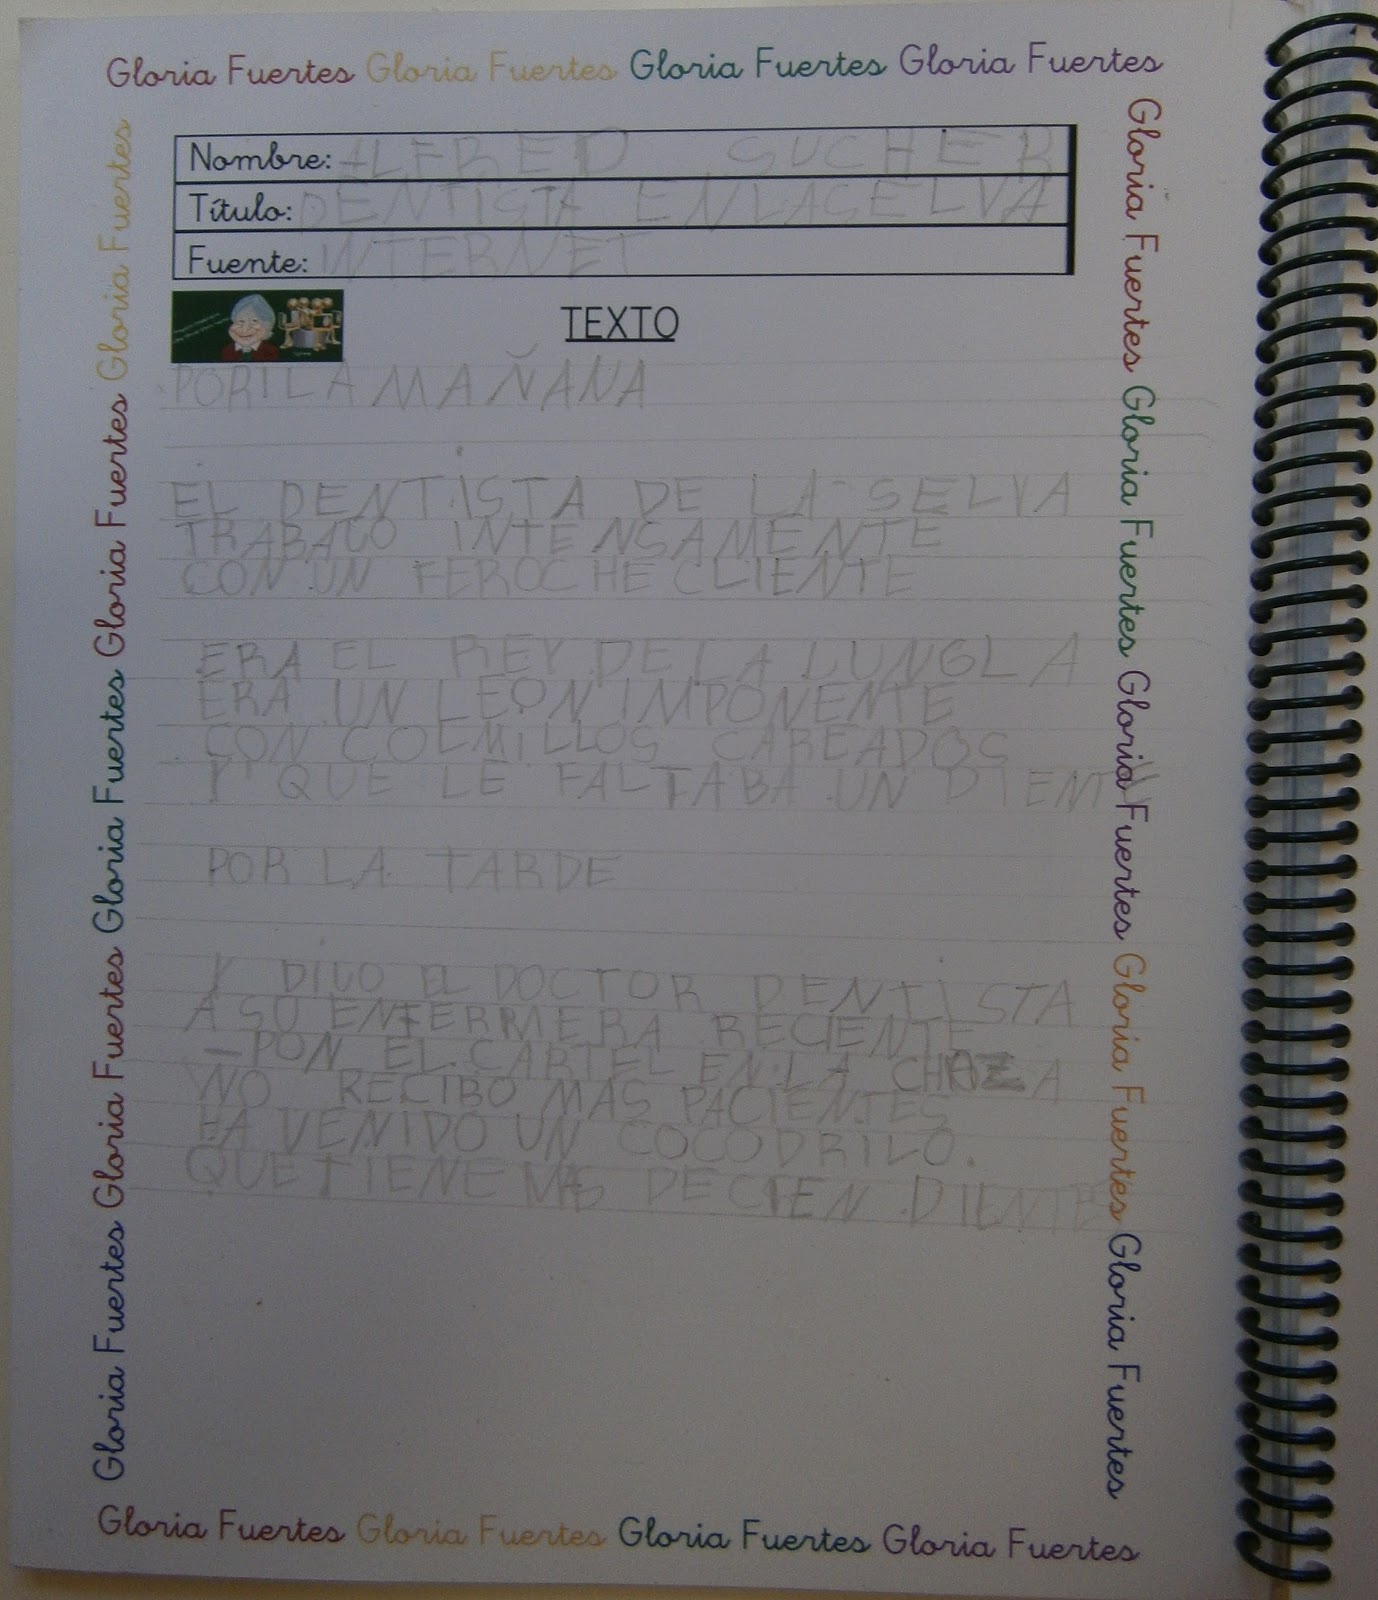 Gloria Fuertes Gloria Fuertes Gloria Fuertes Gloria Fuertes
Nombre: ALFRED SUCHER
Título: DENTISTA EN LA SELVA
Fuente: INTERNET
TEXTO
POR LA MAÑANA
EL DENTISTA DE LA SELVA
TRABAGO INTENSAMENTE
CON UN FEROCHE CLIENTE
ERA EL REY DE LA LUNGLA
ERA UN LEON IMPONENTE
CON COLMILLOS CAREADOS
Y QUE LE FALTABA UN DIENTE
POR LA TARDE
Y DIGO EL DOCTOR DENTISTA
A SU ENFERMERA RECIENTE
-PON EL CARTEL EN LA CHOZA
NO RECIBO MAS PACIENTES
HA VENIDO UN COCODRILO.
QUE TIENE MAS DE CIEN DIENTES
Gloria Fuertes Gloria Fuertes Gloria Fuertes Gloria Fuertes Gloria Fuertes
Gloria Fuertes Gloria Fuertes Gloria Fuertes Gloria Fuertes Gloria Fuertes
Gloria Fuertes Gloria Fuertes Gloria Fuertes Gloria Fuertes